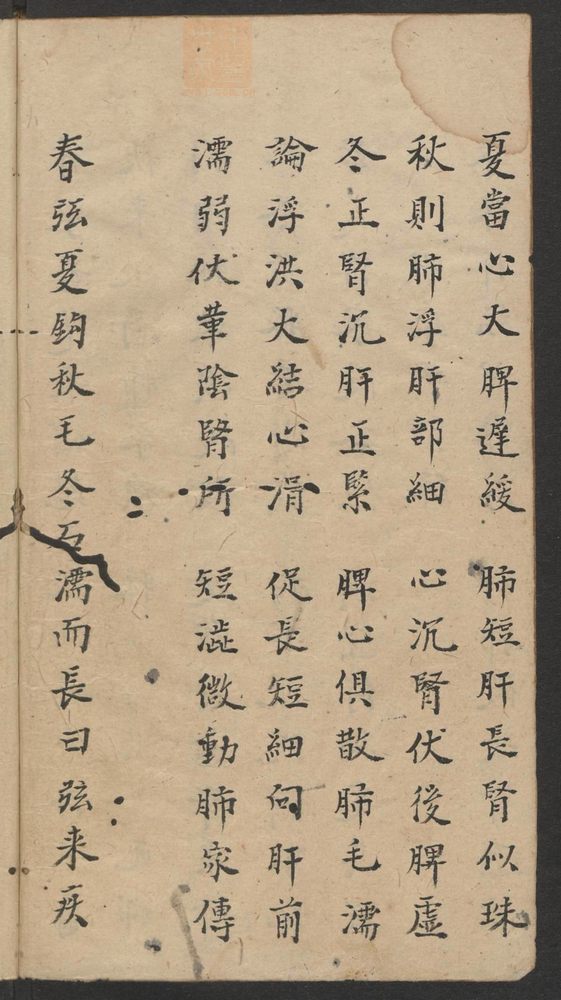 夏當心大脾遲緩 肺短肝長腎似珠
秋則肺浮肝部細 心沉腎伏後脾虛
冬正腎沉肝正緊 脾心俱散肺毛濡
論浮洪大結心滑 促長短細向肝前
濡弱伏革陰腎所 短澁微動肺家傳
春弦夏鈎秋毛冬石濡而長曰弦来疾